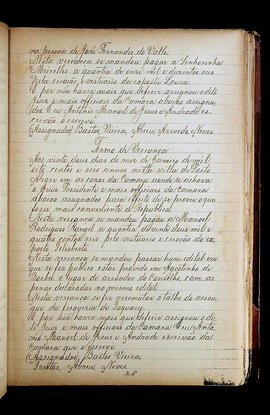 na pessoa de José Fernandes do Valle.
Nesta vereança se mandou pagar a Senhorinha
Meirelles a quantia de onze mil e duzentos reis
pela criação e vestuario da exposta Louisa.
E por não haver mais que deferir assignou o dito
Juiz e mais officiaes da Camara abaixo assigna-
dos. Eu Antonio Manoel de Jesus e Andrade es-
crivão a escrevi.
(Assignados) Bastos, Vieira, Abreu, Azevedo, Neves
Termo de Vereança
Aos vinte dois dias do mez de Janeiro de mil
oito centos e seis annos nesta villa de Porto
Alegre em as casas da Camara aonde se achava
o Juiz Presidente e mais officiaes da Camara
abaixo assignados para effeito de se prover o que
fosse mais conveniente a Republica.
Nesta vereança se mandou pagar a Manoel
Rodrigues Rangel a quantia de vinte dous mil e
quatro centos reis pelo vestuario e criação da ex-
posta Felisberta.
Nesta vereança se mandou passar hum edital em
que se fez publico estar provido em Agostinho de
o lugar de arruador do Conselho, com as
penas declaradas no mesmo edital.
Nesta vereança se fez arrematar o talho do assou-
gue da freguezia de Taquary.
E por não haver mais que deferir assignou o di-
to Juiz e mais officiaes da Camara. Eu Anto-
nio Manoel de Jesus e Andrade escrivão da
Camara que o escrevi.
(Assignados) Bastos, Vieira,
Freitas, Abreu, Neves